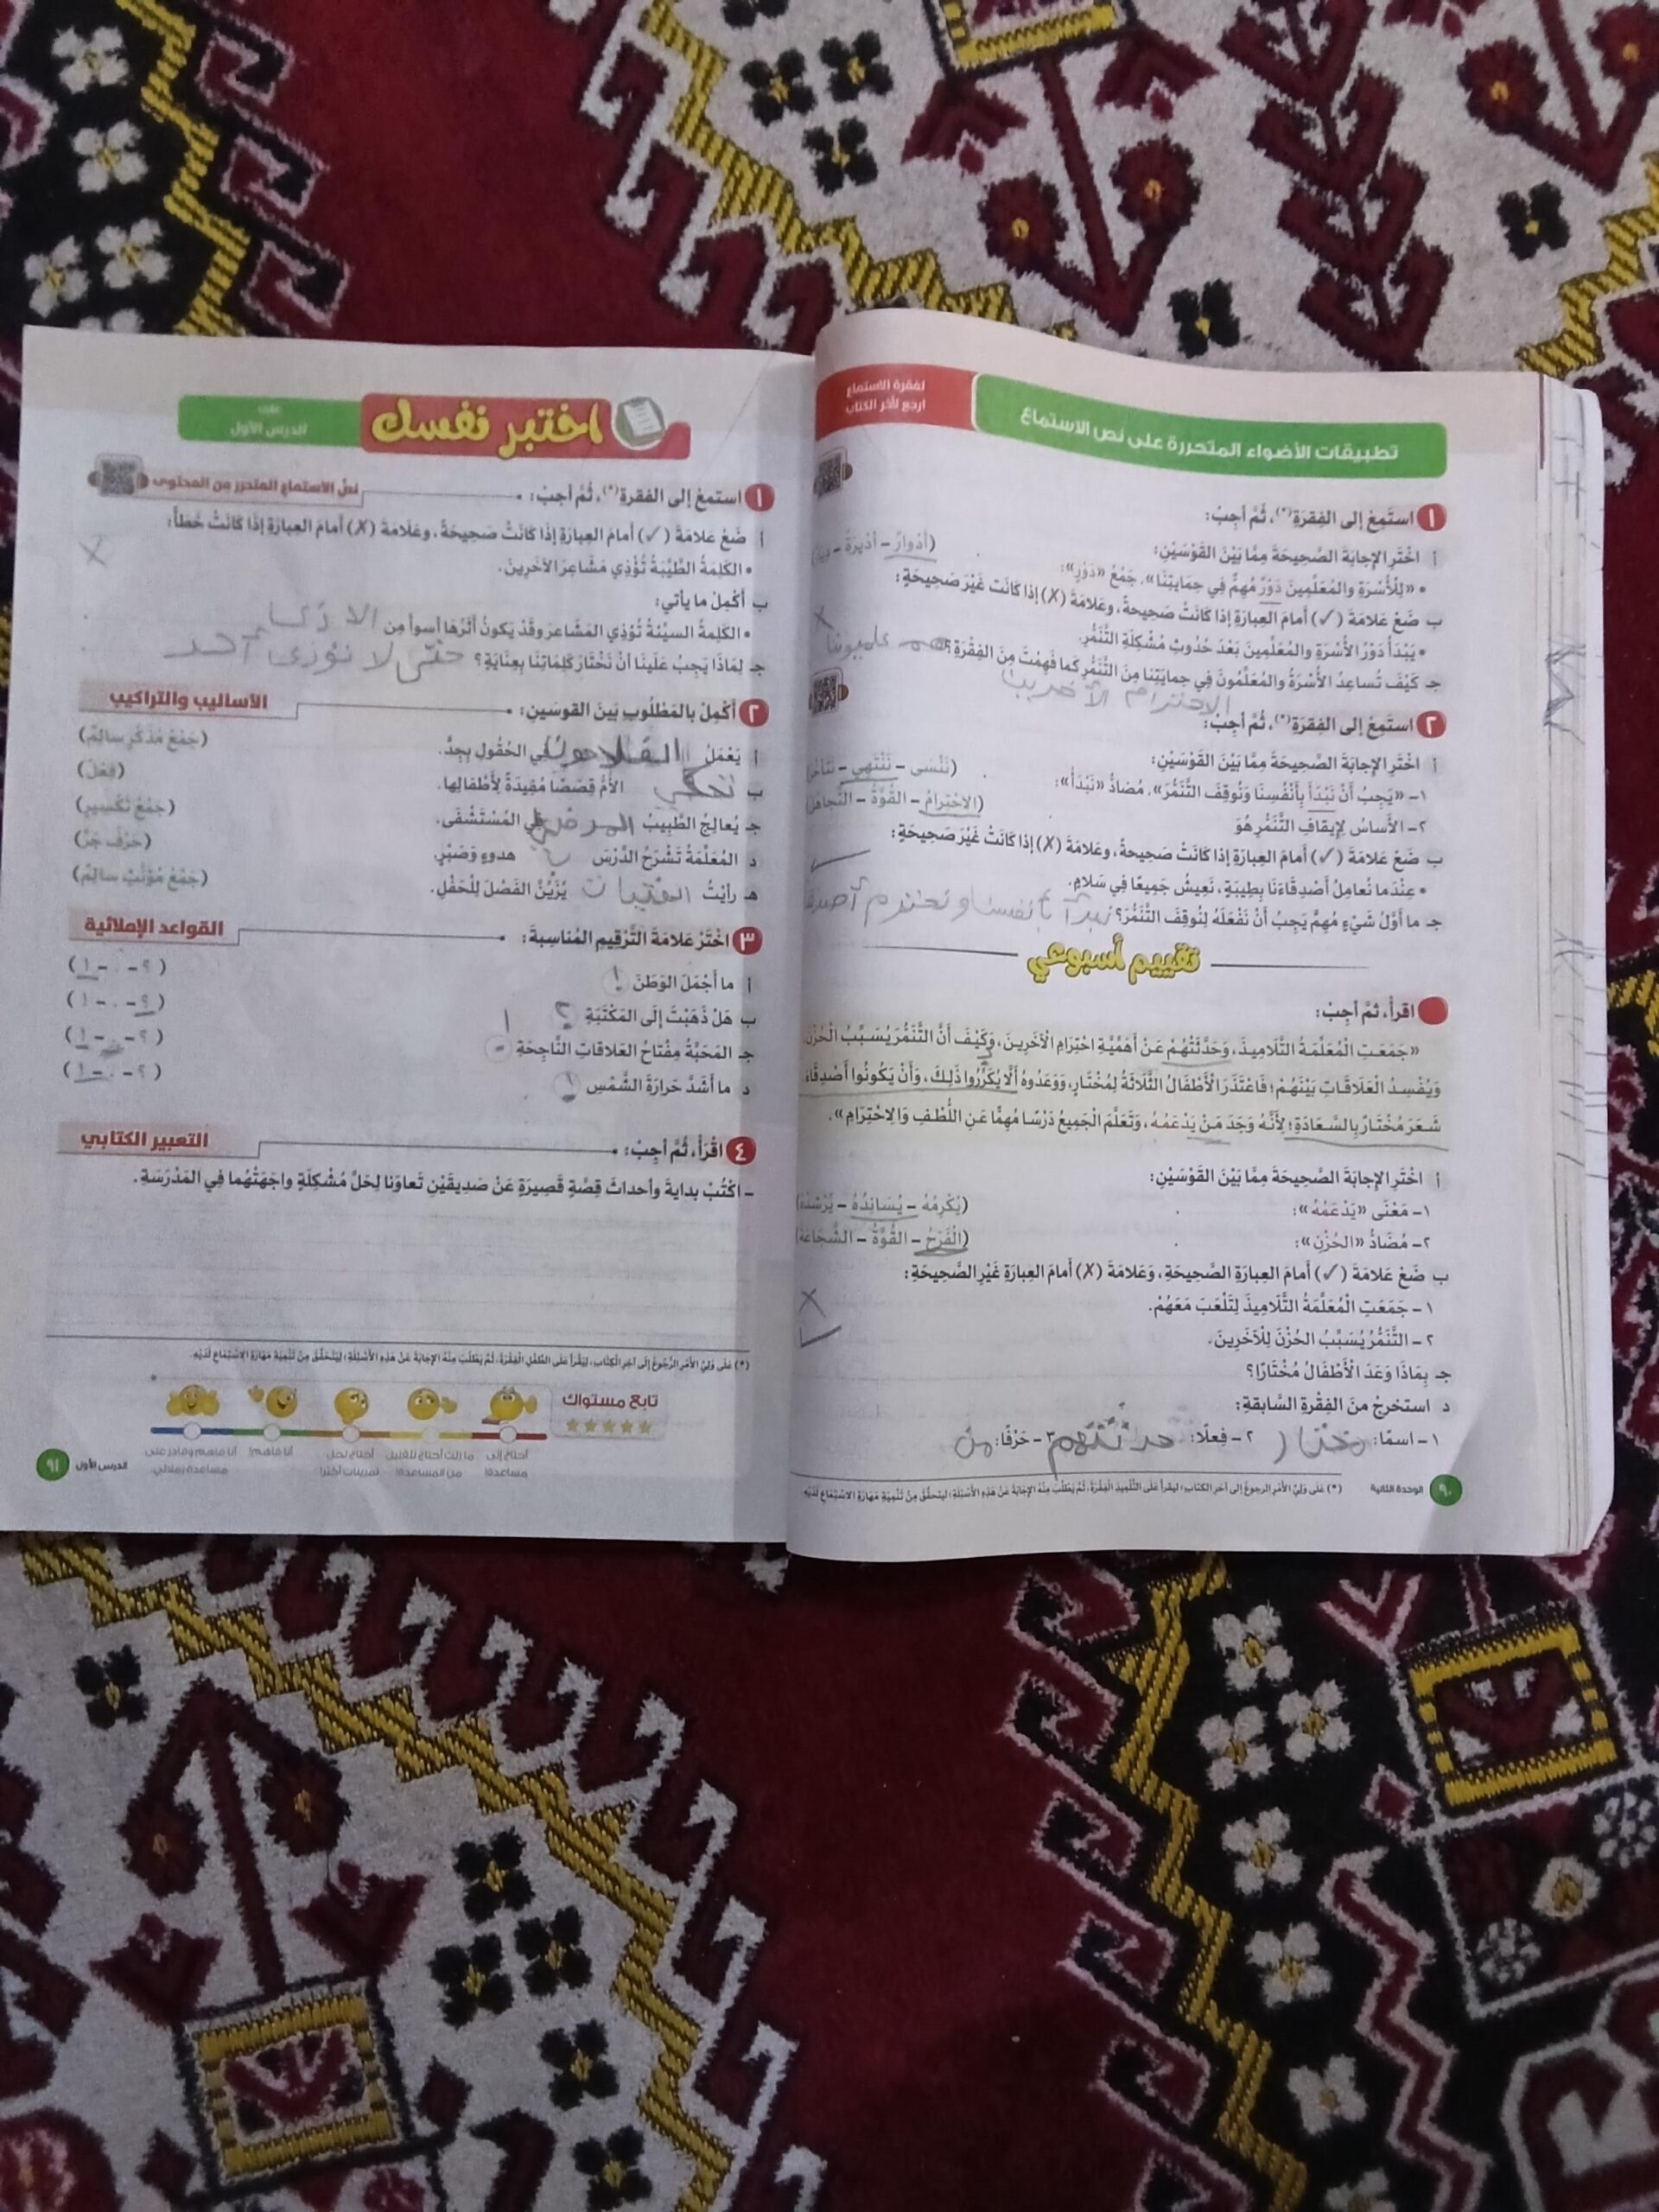 تطبيقات الأضواء المتحررة على نص الاستماع
لفقرة الاستماع
ارجع لآخر الكتاب
١ استَمِعْ إلى الفِقرَةِ(*)، ثُمَّ أجِبْ:
أ اخْتَرِ الإجابَةَ الصَّحيحَةَ مِمَّا بَيْنَ القَوْسَيْنِ:
• «لِلْأُسْرَةِ والمُعَلِّمِينَ دَوْرٌ مُهِمٌّ فِي حِمايَتِنَا»، جَمْعُ «دَوْرٍ»: (أدْوارٌ – أدْيِرَةٌ –
ب ضَعْ عَلامَةَ (✓) أمامَ العِبارَةِ إذا كانَتْ صَحيحَةً، وعَلامَةَ (✗) إذا كانَت غَيْرَ صَحيحَةٍ:
• يَبْدَأُ دَوْرُ الأُسْرَةِ والمُعَلِّمِينَ بَعْدَ حُدُوثِ مُشْكِلَةِ التَّنَمُّرِ. X
جـ كَيْفَ تُساعِدُ الأُسْرَةُ والمُعَلِّمُونَ فِي حِمايَتِنا مِنَ التَّنَمُّرِ كَما فَهِمْتَ مِنَ الفِقْرَةِ؟
الاحترام الآخرين
٢ استَمِعْ إلى الفِقرَةِ(*)، ثُمَّ أجِبْ:
أ اخْتَرِ الإجابَةَ الصَّحيحَةَ مِمَّا بَيْنَ القَوْسَيْنِ:
١– «يَجِبُ أَنْ نَبْدَأَ بِأَنْفُسِنَا وَنُوقِفَ التَّنَمُّرَ»، مُضَادُّ «نَبْدَأَ»: (نَنْسَى – نَنْتَهِي –
٢– الأَساسُ لِإيقافِ التَّنَمُّرِ هُوَ (الاحْتِرامُ – القُوَّةُ – التَّجاهُلُ
ب ضَعْ عَلامَةَ (✓) أمامَ العِبارَةِ إذا كانَتْ صَحيحَةً، وعَلامَةَ (✗) إذا كانَتْ غَيْرَ صَحيحَةٍ:
• عِنْدَما نُعامِلُ أَصْدِقَاءَنَا بِطِيبَةٍ، نَعِيشُ جَمِيعًا فِي سَلامٍ. ✓
جـ ما أوَّلُ شَيْءٍ مُهِمٍّ يَجِبُ أَنْ نَفْعَلَهُ لِنُوقِفَ التَّنَمُّرَ؟ نبدأ بأنفسنا و نحترم
تقييم أسبوعي
اقرأ، ثمَّ أجِبْ:
«جَمَعَتِ الْمُعَلِّمَةُ التَّلَامِيذَ، وَحَدَّثَتْهُمْ عَنْ أَهَمِّيَّةِ احْتِرَامِ الْآخَرِينَ، وَكَيْفَ أَنَّ التَّنَمُّرَ يُسَبِّبُ الْحُزْنَ
وَيُفْسِدُ الْعَلَاقَاتِ بَيْنَهُمْ؛ فَاعْتَذَرَ الْأَطْفَالُ الثَّلَاثَةُ لِمُخْتَارٍ، وَوَعَدُوهُ أَلَّا يُكَرِّرُوا ذَلِكَ، وَأَنْ يَكُونُوا أَصْدِقَاءَ
شَعَرَ مُخْتَارٌ بِالسَّعَادَةِ؛ لِأَنَّهُ وَجَدَ مَنْ يَدْعَمُهُ، وَتَعَلَّمَ الْجَمِيعُ دَرْسًا مُهِمًّا عَنِ اللُّطْفِ وَالِاحْتِرَامِ».
أ اخْتَرِ الإجابَةَ الصَّحيحَةَ مِمَّا بَيْنَ القَوْسَيْنِ:
١– مَعْنَى «يَدْعَمُهُ»: (يُكْرِمُهُ – يُسَانِدُهُ – يُرْشِدُهُ)
٢– مُضَادُّ «الحُزْنِ»: (الْفَرَحُ – القُوَّةُ – الشَّجَاعَةُ)
ب ضَعْ عَلامَةَ (✓) أمامَ العِبارَةِ الصَّحيحَةِ، وَعَلامَةَ (✗) أمامَ العِبارَةِ غَيْرِ الصَّحيحَةِ:
١– جَمَعَتِ الْمُعَلِّمَةُ التَّلَامِيذَ لِتَلْعَبَ مَعَهُمْ. X
٢– التَّنَمُّرُ يُسَبِّبُ الحُزْنَ لِلْآخَرِينَ. ✓
جـ بِمَاذَا وَعَدَ الْأَطْفَالُ مُخْتَارًا؟
د استخرِجْ مِنَ الفِقْرةِ السَّابقةِ:
١– اسمًا: مختار ٢– فِعلًا: حدثتهم ٣– حَرْفًا: من
(*) عَلَى وَلِيِّ الأَمْرِ الرجوعُ إلى آخرِ الكتابِ؛ ليقرأَ على التِّلْمِيذِ الفِقْرَةَ، ثُمَّ يَطْلُبَ مِنْهُ الإجابَةَ عَنْ هَذِهِ الأَسْئِلَةِ؛ ليتحقَّقَ مِنْ تَنْمِيَةِ مَهارَةِ الاسْتِماعِ لَدَيْهِ.
٩٠ الوحدة الثانية
اختبر نفسك
على
الدرس الأول
١ استمعْ إلى الفقرةِ(*)، ثُمَّ أجبْ: نصُّ الاستماع المتحرر من المحتوى
أ ضَعْ عَلامَةَ (✓) أمامَ العِبارَةِ إذَا كَانَتْ صَحيحَةً، وعَلامَةَ (✗) أمامَ العِبارَةِ إذَا كَانَتْ خَطَأً:
• الكَلِمَةُ الطَّيِّبَةُ تُؤْذِي مَشَاعِرَ الآخَرِينَ. X
ب أكْمِلْ ما يأتي:
• الكَلِمَةُ السيِّئَةُ تُؤْذِي المَشَاعرَ وقَدْ يَكونُ أثَرُهَا أسوأَ مِن
جـ لِمَاذَا يَجِبُ عَلَيْنَا أَنْ نَخْتَارَ كَلِمَاتِنَا بِعِنَايَةٍ؟ حتى لا نؤذي أحد
٢ أكْمِلْ بالمَطْلُوبِ بَينَ القوسَينِ: الأساليب والتراكيب
أ يَعْمَلُ الفلاحون في الحُقُولِ بِجِدٍّ. (جَمْعُ مُذَكَّرٍ سالِمٌ)
ب تحكي الأُمُّ قِصَصًا مُفِيدَةً لِأَطْفالِها. (فِعْلٌ)
جـ يُعالِجُ الطَّبِيبُ المرضى في المُسْتَشْفَى. (جَمْعُ تَكْسِيرٍ)
د المُعَلِّمَةُ تَشْرَحُ الدَّرْسَ بـ هدوءٍ وَصَبْرٍ. (حَرْفُ جَرٍّ)
هـ رأيْتُ الفتيات يُزَيِّنَّ الفَصْلَ لِلْحَفْلِ. (جَمْعُ مُؤَنَّثٍ سالِمٌ)
٣ اخْتَرْ عَلامَةَ التَّرْقِيمِ المُناسِبةَ: القواعد الإملائية
أ ما أجْمَلَ الوَطَنَ ! (؟ – . – !)
ب هَلْ ذَهَبْتَ إلَى المَكْتَبَةِ ؟ (؟ – . – !)
جـ المَحَبَّةُ مِفْتاحُ العَلاقاتِ النَّاجِحَةِ . (؟ – . – !)
د ما أَشَدَّ حَرارَةَ الشَّمْسِ ! (؟ – . – !)
٤ اقْرَأْ، ثُمَّ أجِبْ: التعبير الكتابي
– اكْتُبْ بدايةَ وأحداثَ قِصَّةٍ قَصِيرَةٍ عَنْ صَدِيقَيْنِ تَعاوَنا لِحَلِّ مُشْكِلَةٍ واجَهَتْهُما فِي المَدْرَسَةِ.
(*) عَلَى وَلِيِّ الأَمْرِ الرُّجُوعُ إلَى آخِرِ الْكِتَابِ، لِيَقْرَأَ عَلَى الطِّفْلِ الْفِقْرَةَ، ثُمَّ يَطْلُبَ مِنْهُ الإجَابَةَ عَنْ هَذِهِ الأَسْئِلَةِ؛ لِيَتَحَقَّقَ مِنْ تَنْمِيَةِ مَهَارَةِ الِاسْتِمَاعِ لَدَيْهِ.
تابع مستواك
أحتاج إلى مساعدة!
ما زلت أحتاج للقليل من المساعدة!
أحتاج لحل تمرينات أكثر!
أنا فاهم!
أنا فاهم وقادر على مساعدة زملائي
الدرس الأول ٩١